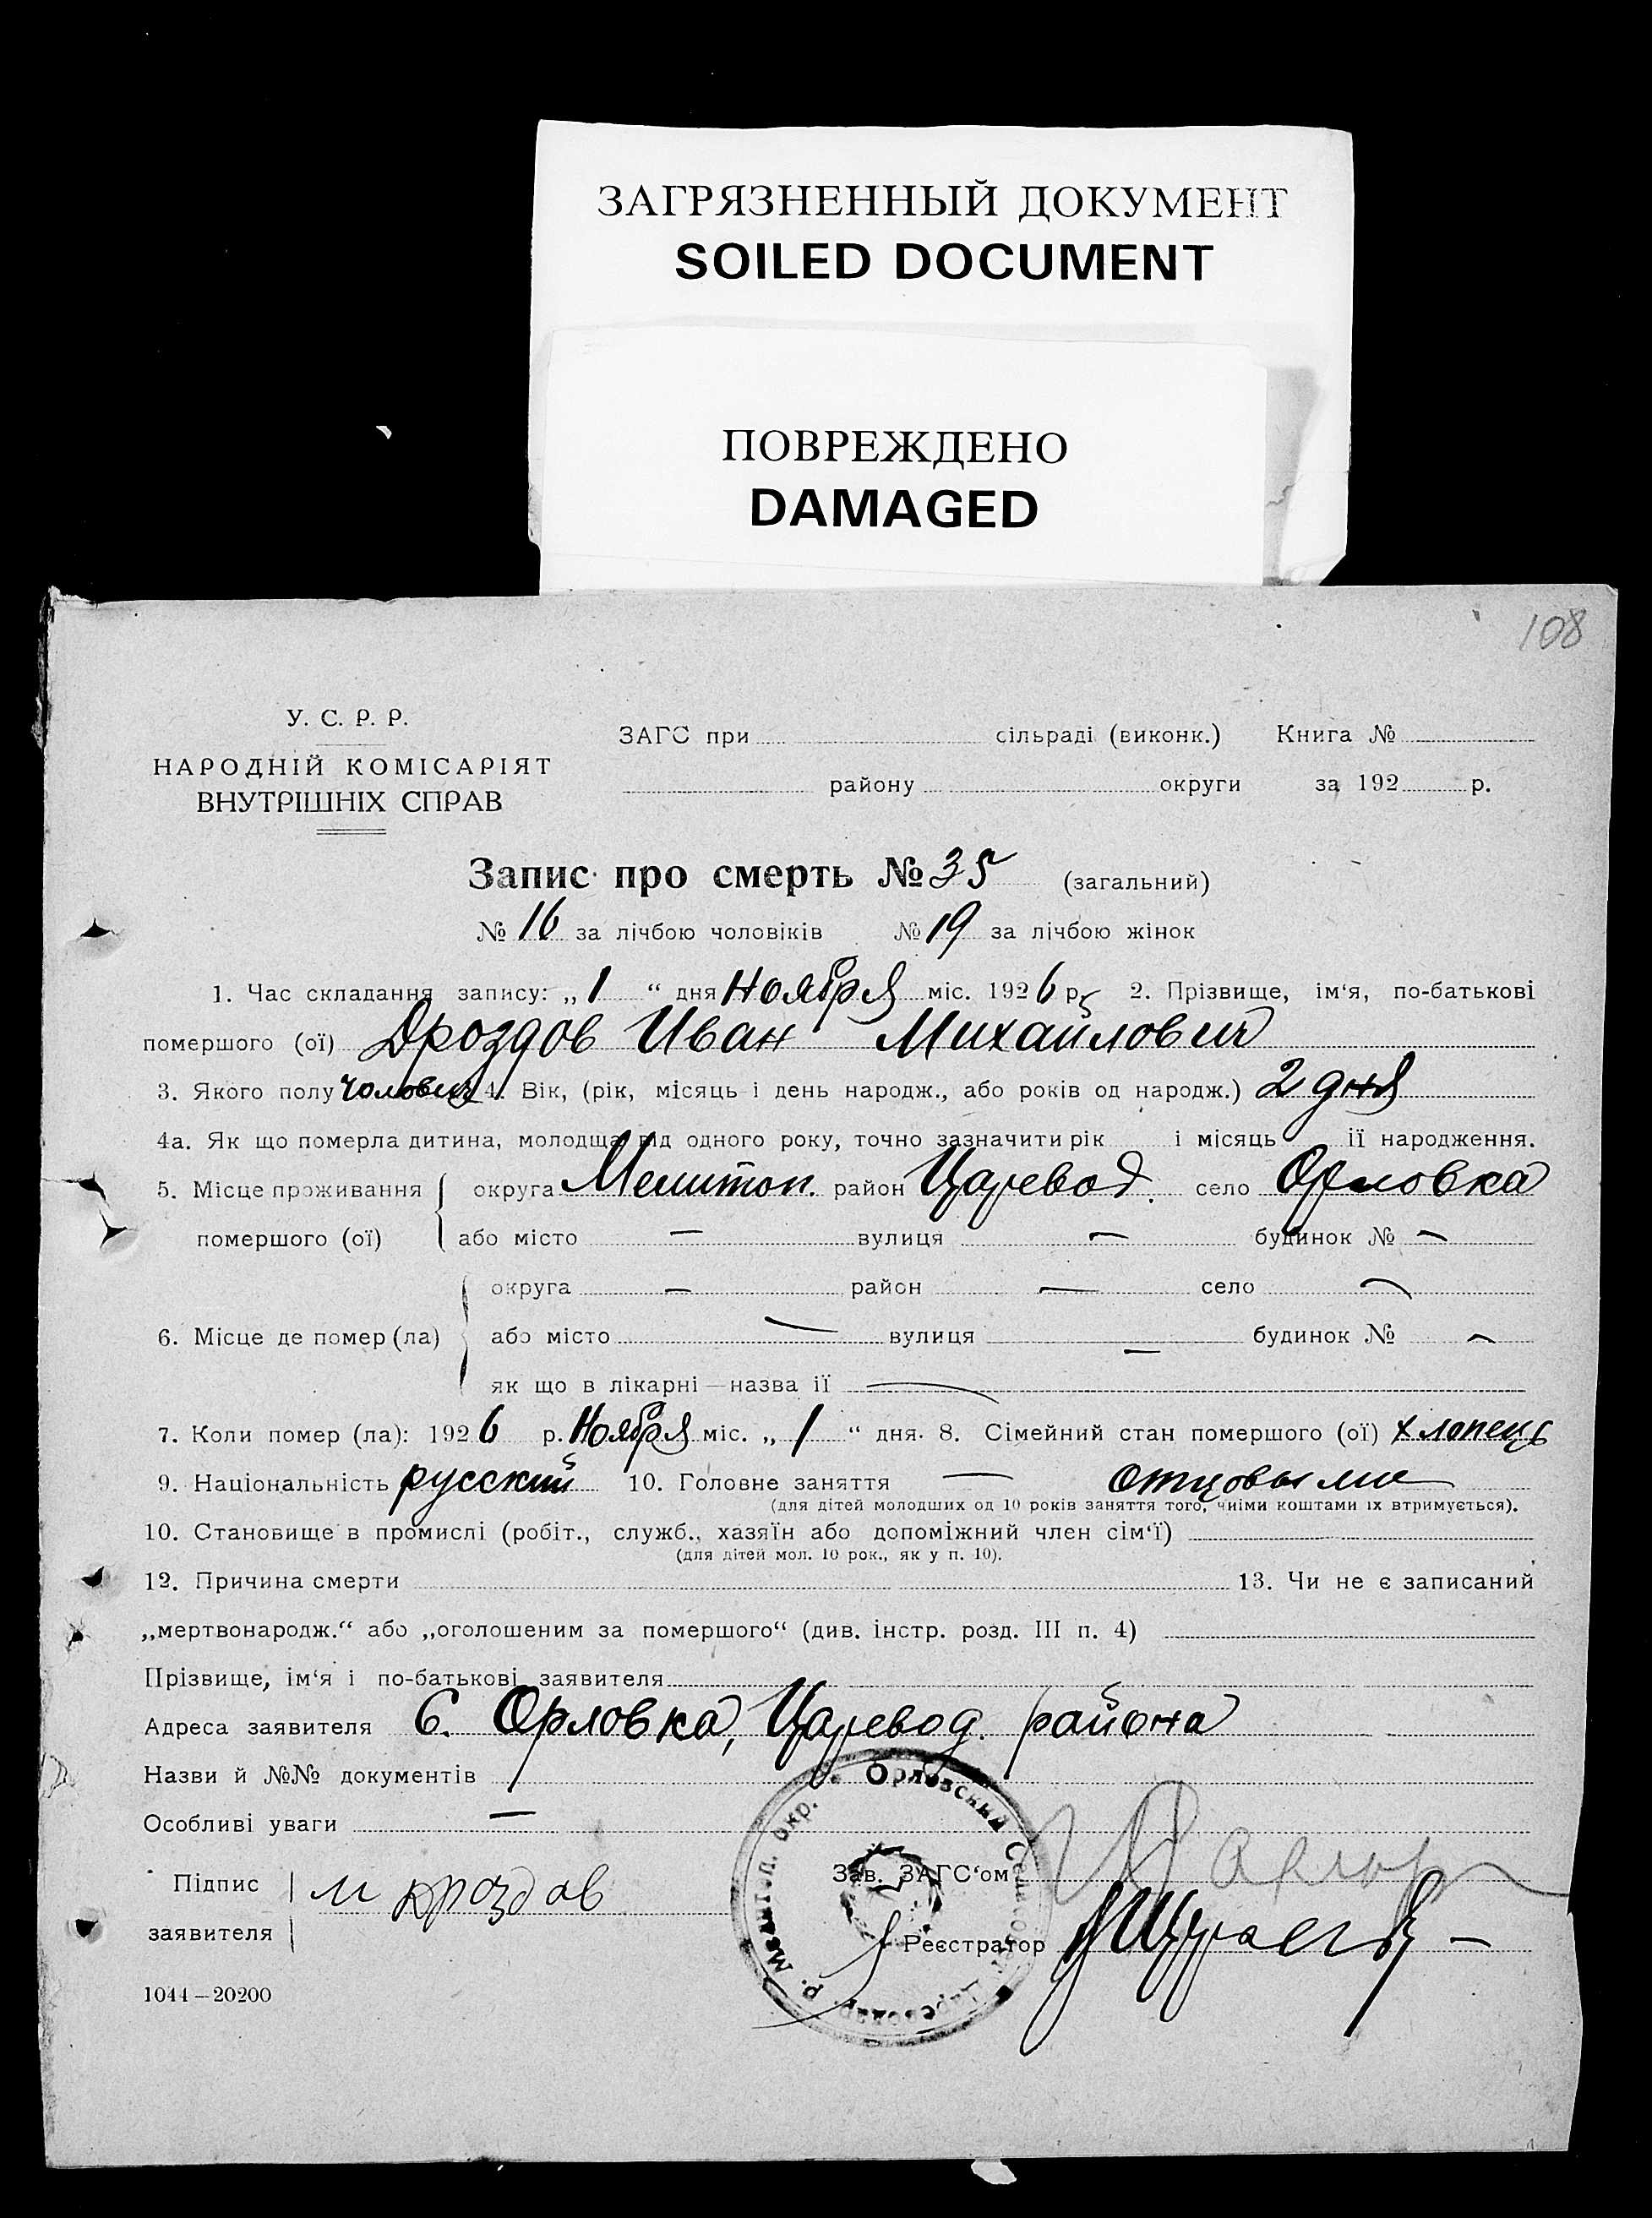 ЗАГРЯЗНЕННЫЙ ДОКУМЕНТ
SOILED DOCUMENT
ПОВРЕЖДЕНО
DAMAGED
108
У. С. Р. Р.
НАРОДНІЙ КОМІСАРІЯТ
ВНУТРІШНІХ СПРАВ
ЗАГС при сільраді (виконк.) Книга №
району округи за 192 р.
Запис про смерть № 35 (загальний)
№ 16 за лічбою чоловіків № 19 за лічбою жінок
1. Час складання запису: „ 1 “ дня Ноября міс. 1926 р. 2. Прізвище, ім‘я, по-батькові
помершого (ої) Дроздов Иван Михайлович
3. Якого полу 4. Вік, (рік, місяць і день народж., або років од народж.) 2 дня
4а. Як що померла дитина, молодща від одного року, точно зазначити рік і місяць її народження.
5. Місце проживання округа Мелитоп. район Царевод. село Орловка
помершого (ої) або місто — вулиця — будинок № —
округа — район — село —
6. Місце де помер (ла) або місто — вулиця — будинок № —
як що в лікарні—назва її —
7. Коли помер (ла): 1926 р. Ноября міс. „ 1 “ дня. 8. Сімейний стан помершого (ої) хлопець
9. Національність русский 10. Головне заняття —
(для дітей молодших од 10 років заняття того, чиїми коштами їх втримується).
10. Становище в промислі (робіт., служб., хазяїн або допоміжний член сім‘ї)
(для дітей мол. 10 рок., як у п. 10).
12. Причина смерти 13. Чи не є записаний
„мертвонародж.“ або „оголошеним за помершого“ (див. інстр. розд. III п. 4)
Прізвище, ім‘я і по-батькові заявителя
Адреса заявителя С. Орловка, Царевод. района
Назви й №№ документів
Особливі уваги —
Підпис м дроздов
заявителя
Зав. ЗАГС‘ом
Реєстратор
1044—20200